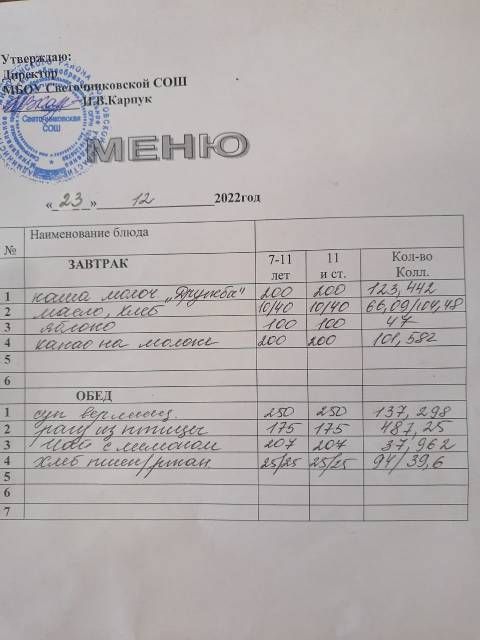 Утверждаю:
Директор
МБОУ Светочниковской СОШ
Н.В.Карпук
Светочниковская
СОШ
МЕНЮ
«23» 12 2022год
№ Наименование блюда
ЗАВТРАК 7-11 лет 11 и ст. Кол-во Колл.
1 каша молоч „Дружба" 200 200 123,442
2 масло, хлеб 10/40 10/40 66,09/104,48
3 яблоко 100 100 47
4 какао на молоке 200 200 101,582
5
6
ОБЕД
1 суп вермишел. 250 250 137,298
2 рагу из птицы 175 175 487,25
3 чай с лимоном 207 207 37,962
4 хлеб пшен/ржан 25/25 25/25 94/39,6
5
6
7